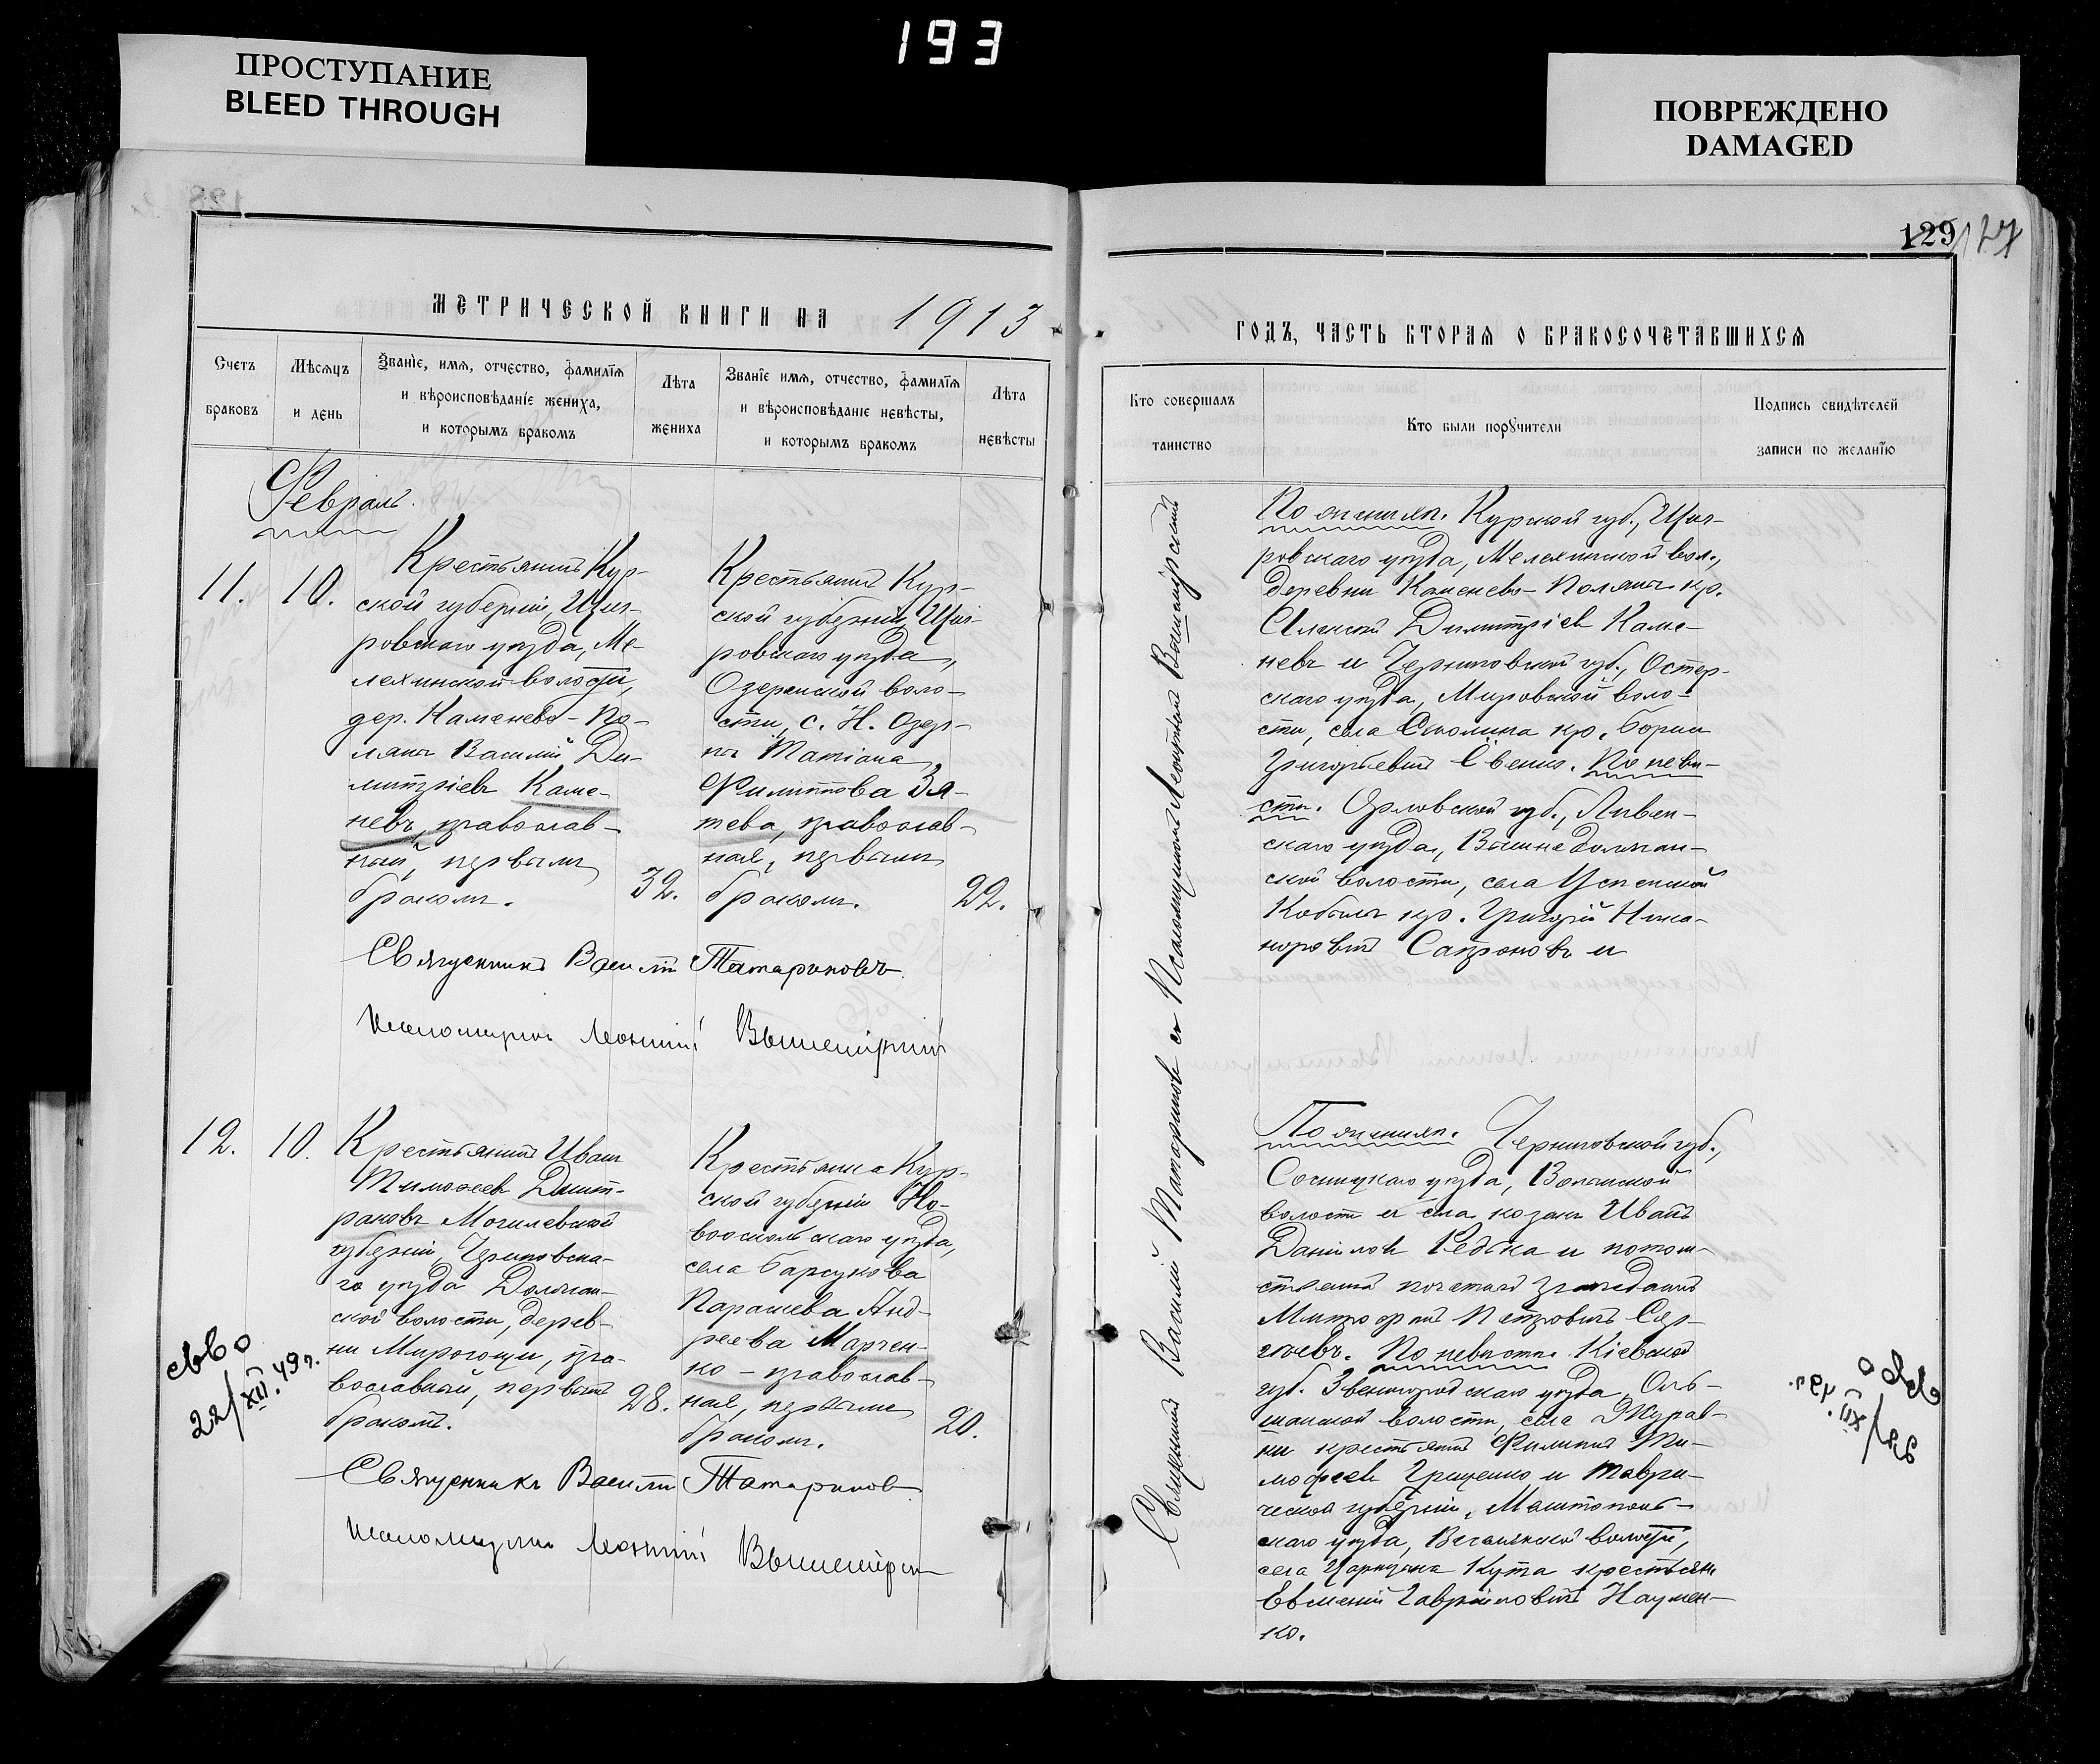 193
ПРОСТУПАНИЕ
BLEED THROUGH
ПОВРЕЖДЕНО
DAMAGED
129 127
МЕТРИЧЕСКОЙ КНИГИ НА 1913
Счетъ
браковъ
Мѣсяцъ
и день
Званїе, имя, отчество, фамилїя
и вѣроисповѣданїе жениха,
и которымъ бракомъ
Лѣта
жениха
Званїе имя, отчество, фамилїя
и вѣроисповѣданїе невѣсты,
и которымъ бракомъ
Лѣта
невѣсты
Февраль.
11. 10.
Крестьянинъ Кур-
ской губерніи, Щиг-
ровскаго уѣзда, Ме-
лехинской волости,
дер. Каменево-По-
ляны Василій Ди-
митріевъ Каме-
невъ, православ-
ный, первымъ
бракомъ.
32.
Крестьянка Кур-
ской губерніи, Щиг-
ровскаго уѣзда,
Озеренской воло-
сти, с. Н. Озер-
на Татіана
Филиппова Зя-
тева, православ-
ная, первымъ
бракомъ.
22.
Священникъ Василій Татариновъ
Псаломщикъ Леонтій
12. 10.
Крестьянинъ Иванъ
Тимоѳеевъ Дмит-
раковъ Могилевской
губерніи, Чериковска-
го уѣзда
ской волости, дерев-
ни Мирогощи, пра-
вославный, первымъ
бракомъ.
28.
Крестьянка Кур-
ской губерніи Но-
вооскольскаго уѣзда,
села Барсукова
Параскева Анд-
реева Марчен-
ко - православ-
ная, первымъ
бракомъ.
20.
Священникъ Василій Татариновъ
Псаломщикъ Леонтій
св-во
22/XII.49г.
ГОДЪ, ЧАСТЬ ВТОРАЯ О БРАКОСОЧЕТАВШИХСЯ
Кто совершалъ
таинство
Кто были порꙋчители
Подпись свидѣтелей
записи по желанїю
Священникъ Василій Татариновъ съ Псаломщикомъ Леонтіемъ
По женихѣ. Курской губ., Щиг-
ровскаго уѣзда, Мелехинской вол.,
деревни Каменево-Поляны кр.
Алексѣй Димитріевъ Каме-
невъ и Черниговской губ., Остер-
скаго уѣзда, Мировской воло-
сти, села кр. Борис
Григорьевичъ Евенко. По невѣ-
стѣ. Орловской губ., Ливен-
скаго уѣзда,
ской волости, села Успенской
Кобылы кр. Григорій Ника-
норовичъ Сапроновъ и
По женихѣ. Черниговской губ.,
Сосницкаго уѣзда, Волынской
волости и села козакъ Иванъ
Даніловъ Редька и потом-
ственный почетный гражданинъ
Митрофанъ Петровичъ Сер-
гѣевъ. По невѣстѣ. Кіевской
губ. Звенигородскаго уѣзда, Оль-
шанской волости, села Журав-
ки крестьянинъ Филиппъ Ти-
мофеевъ Гриценко и Таври-
ческой губерніи, Мелитополь-
скаго уѣзда, волости,
села Царицына Кута крестьян.
Евменій Гавріиловичъ Наумен-
ко.